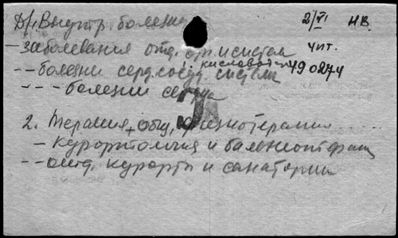 Внутр. болезни 2/VI нв.
– заболевания отд. орг. и систем чит.
– – болезни серд. сосуд. системы 490274
– – – болезни сердца
2. Терапия, общ, физиотерапия ....
– курортология и бальнеотерап
– – отд. курорты и санатории